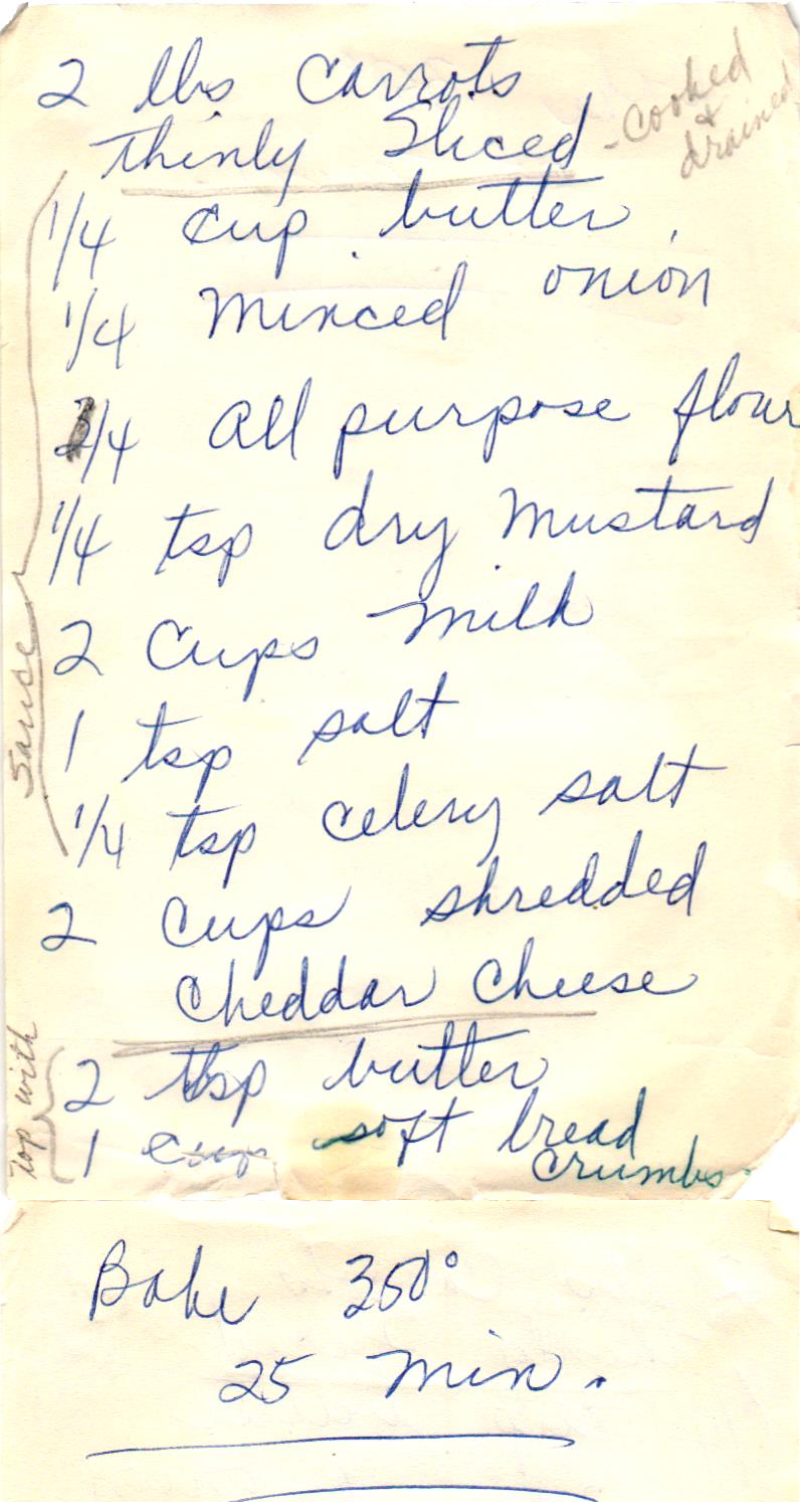 2 lbs Carrots
Thinly Sliced - cooked
& drained
1/4 cup butter
1/4 Minced onion
/4 All purpose flour
1/4 tsp dry Mustard
2 Cups Milk
1 tsp salt
1/4 tsp celery salt
2 Cups shredded
Cheddar Cheese
Sauce
2 tbsp butter
1 cup soft bread
crumbs.
Top with
Bake 350°
25 Min.